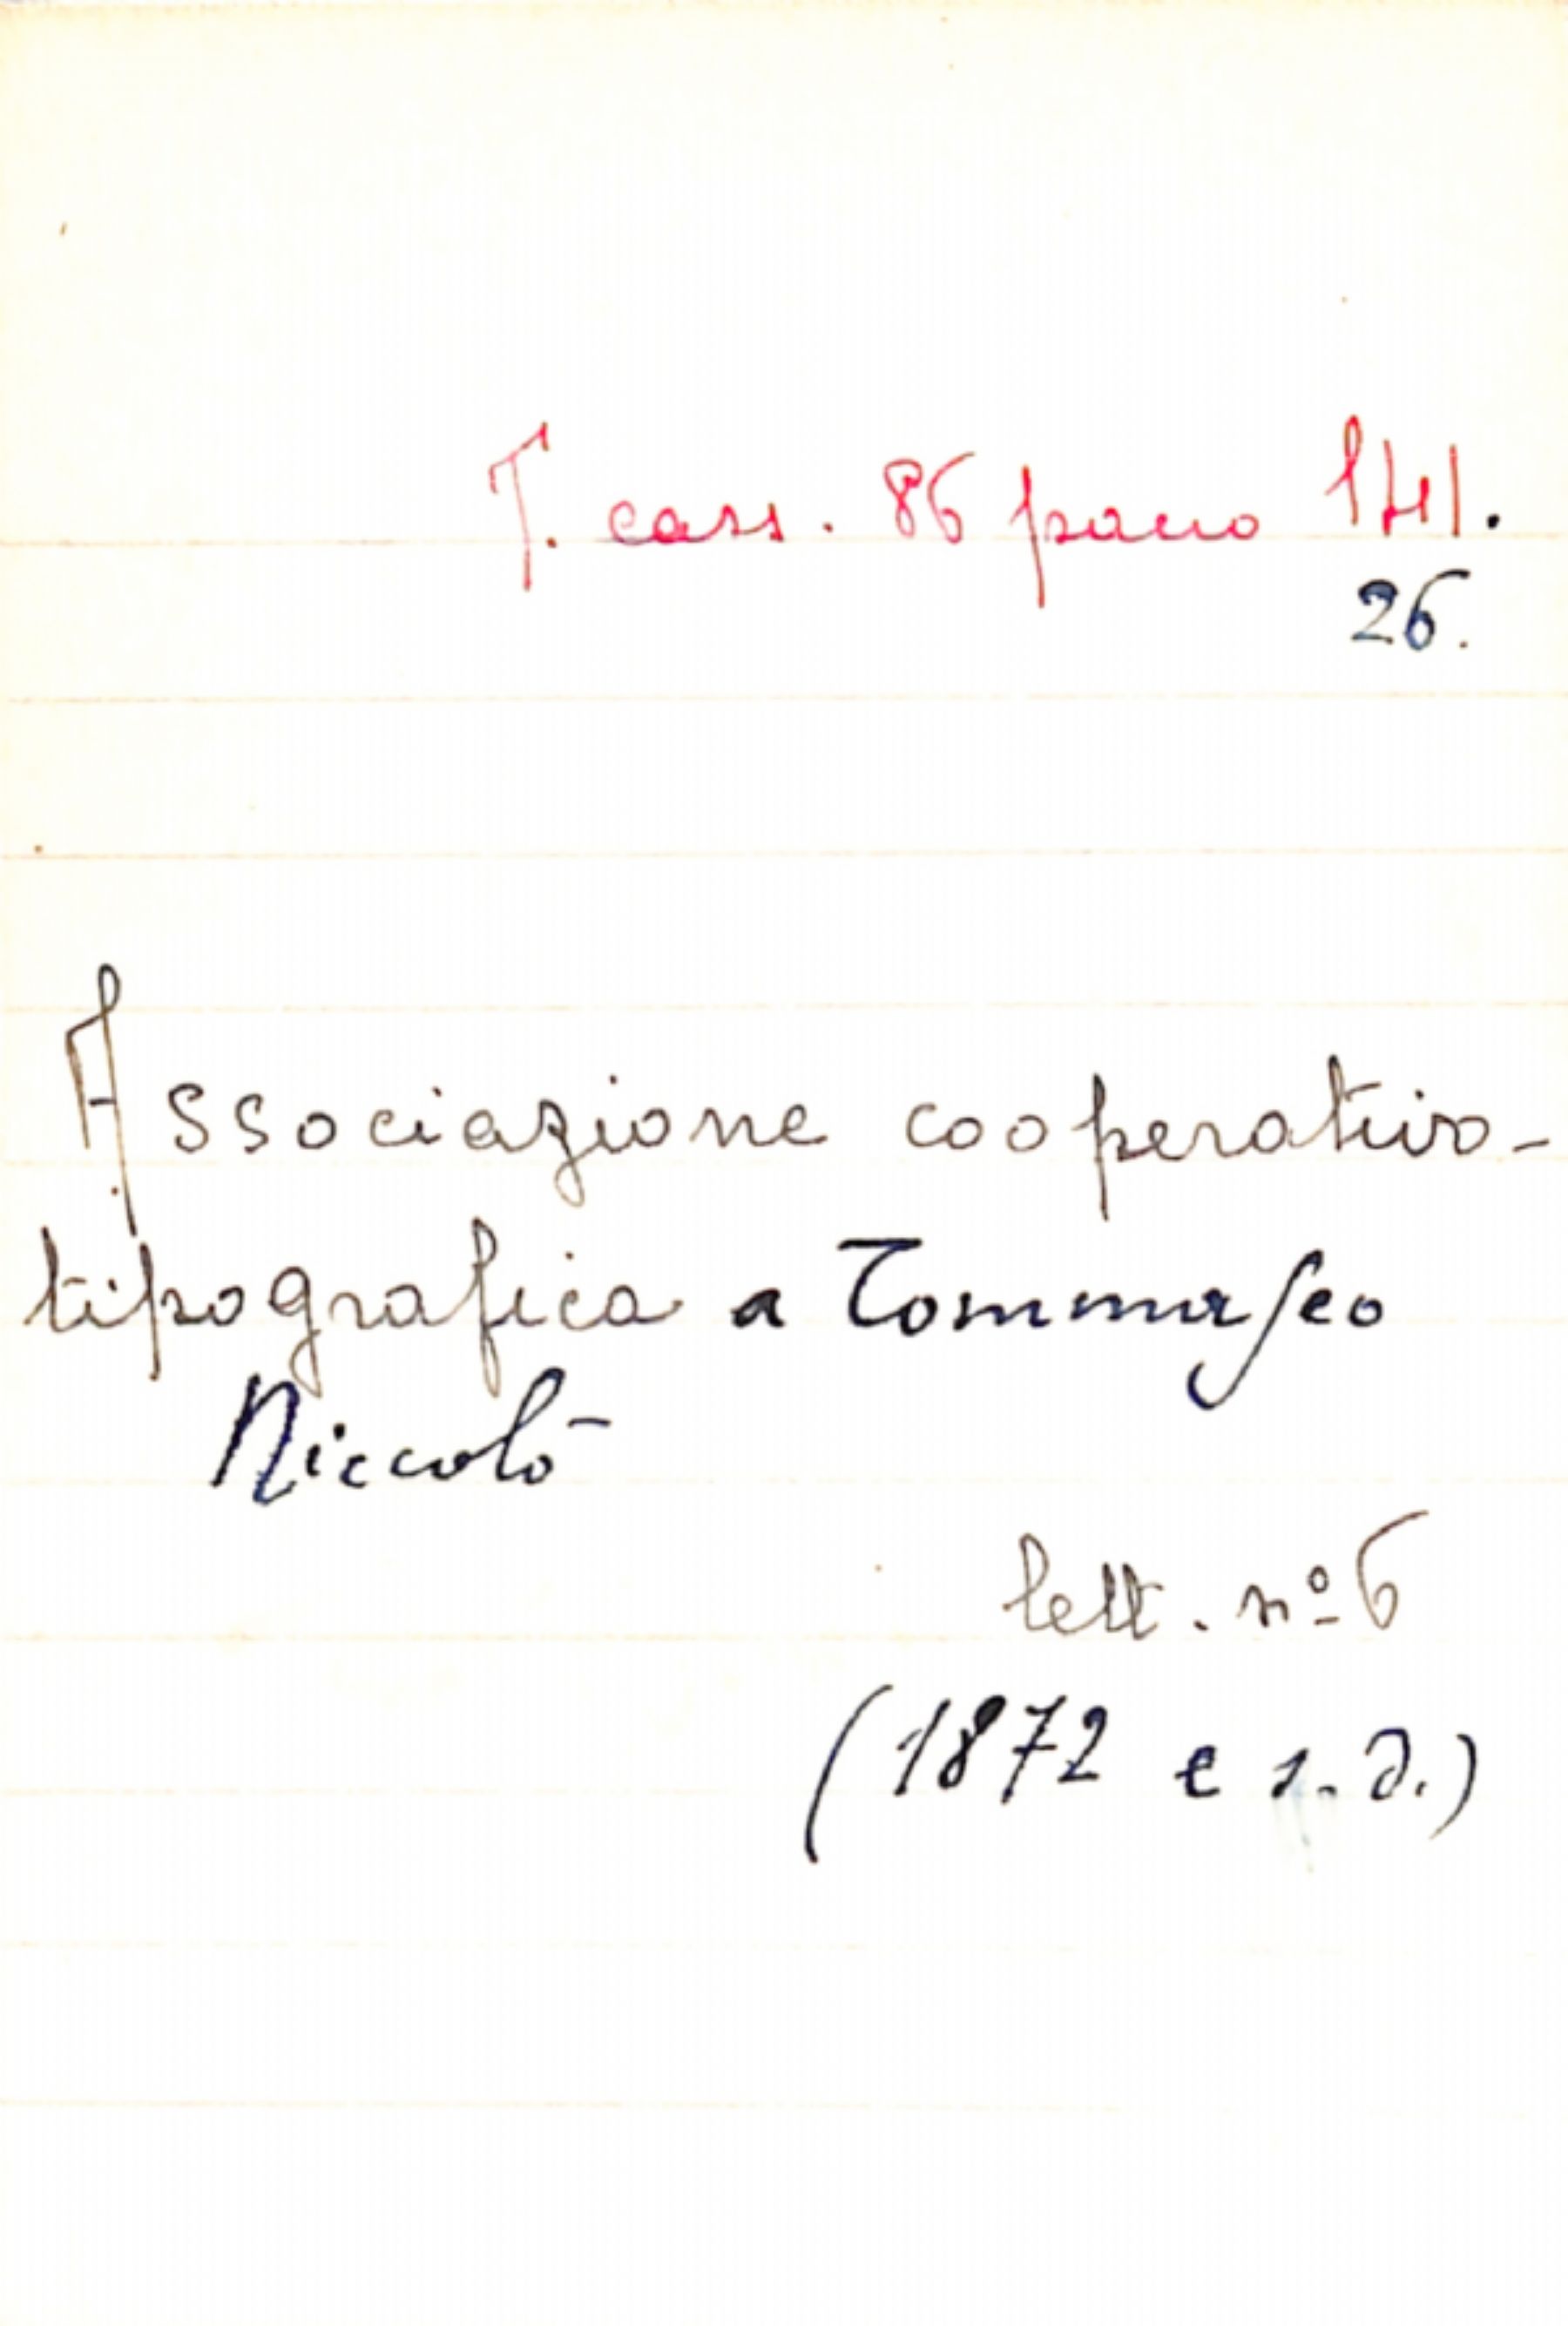 T. cass. 86 pacco 141.
26.
Associazione cooperativo-
tipografica a Tommaseo
Niccolò
lett. nº 6
(1872 e s.d.)